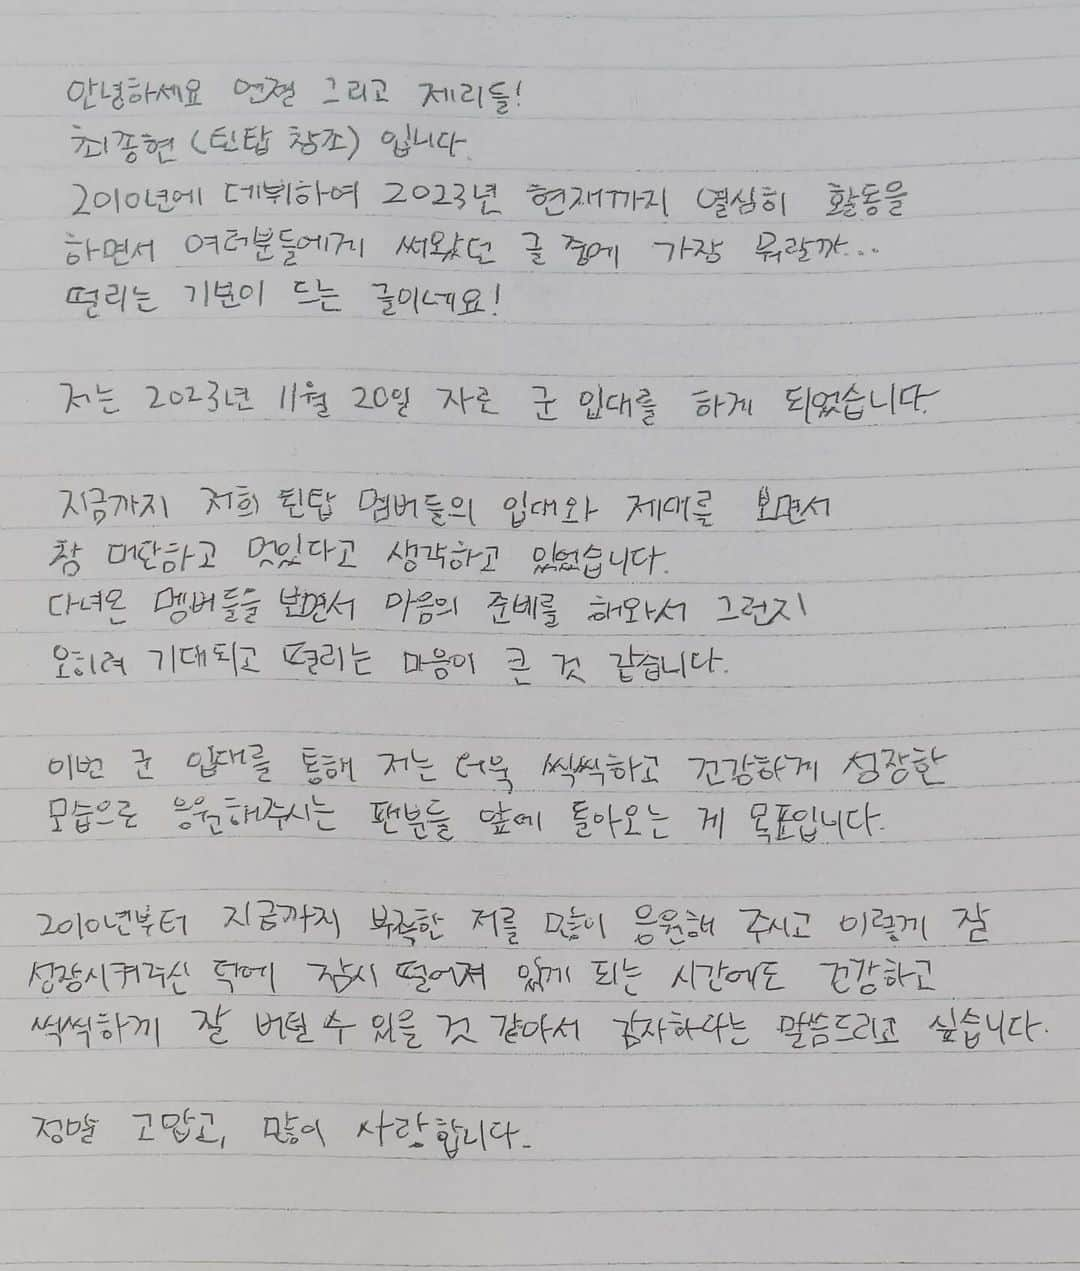 안녕하세요 엔젤 그리고 제리들!
최종현 (틴탑 창조) 입니다.
2010년에 데뷔하여 2023년 현재까지 열심히 활동을
하면서 여러분들에게 써왔던 글 중에 가장 뭐랄까...
떨리는 기분이 드는 글이네요!
저는 2023년 11월 20일 자로 군 입대를 하게 되었습니다.
지금까지 저희 틴탑 멤버들의 입대와 제대를 보면서
참 대단하고 멋있다고 생각하고 있었습니다.
다녀온 멤버들을 보면서 마음의 준비를 해와서 그런지
오히려 기대되고 떨리는 마음이 큰 것 같습니다.
이번 군 입대를 통해 저는 더욱 씩씩하고 건강하게 성장한
모습으로 응원해주시는 팬분들 앞에 돌아오는 게 목표입니다.
2010년부터 지금까지 부족한 저를 많이 응원해 주시고 이렇게 잘
성장시켜주신 덕에 잠시 떨어져 있게 되는 시간에도 건강하고
씩씩하게 잘 버틸 수 있을 것 같아서 감사하다는 말씀드리고 싶습니다.
정말 고맙고, 많이 사랑합니다.